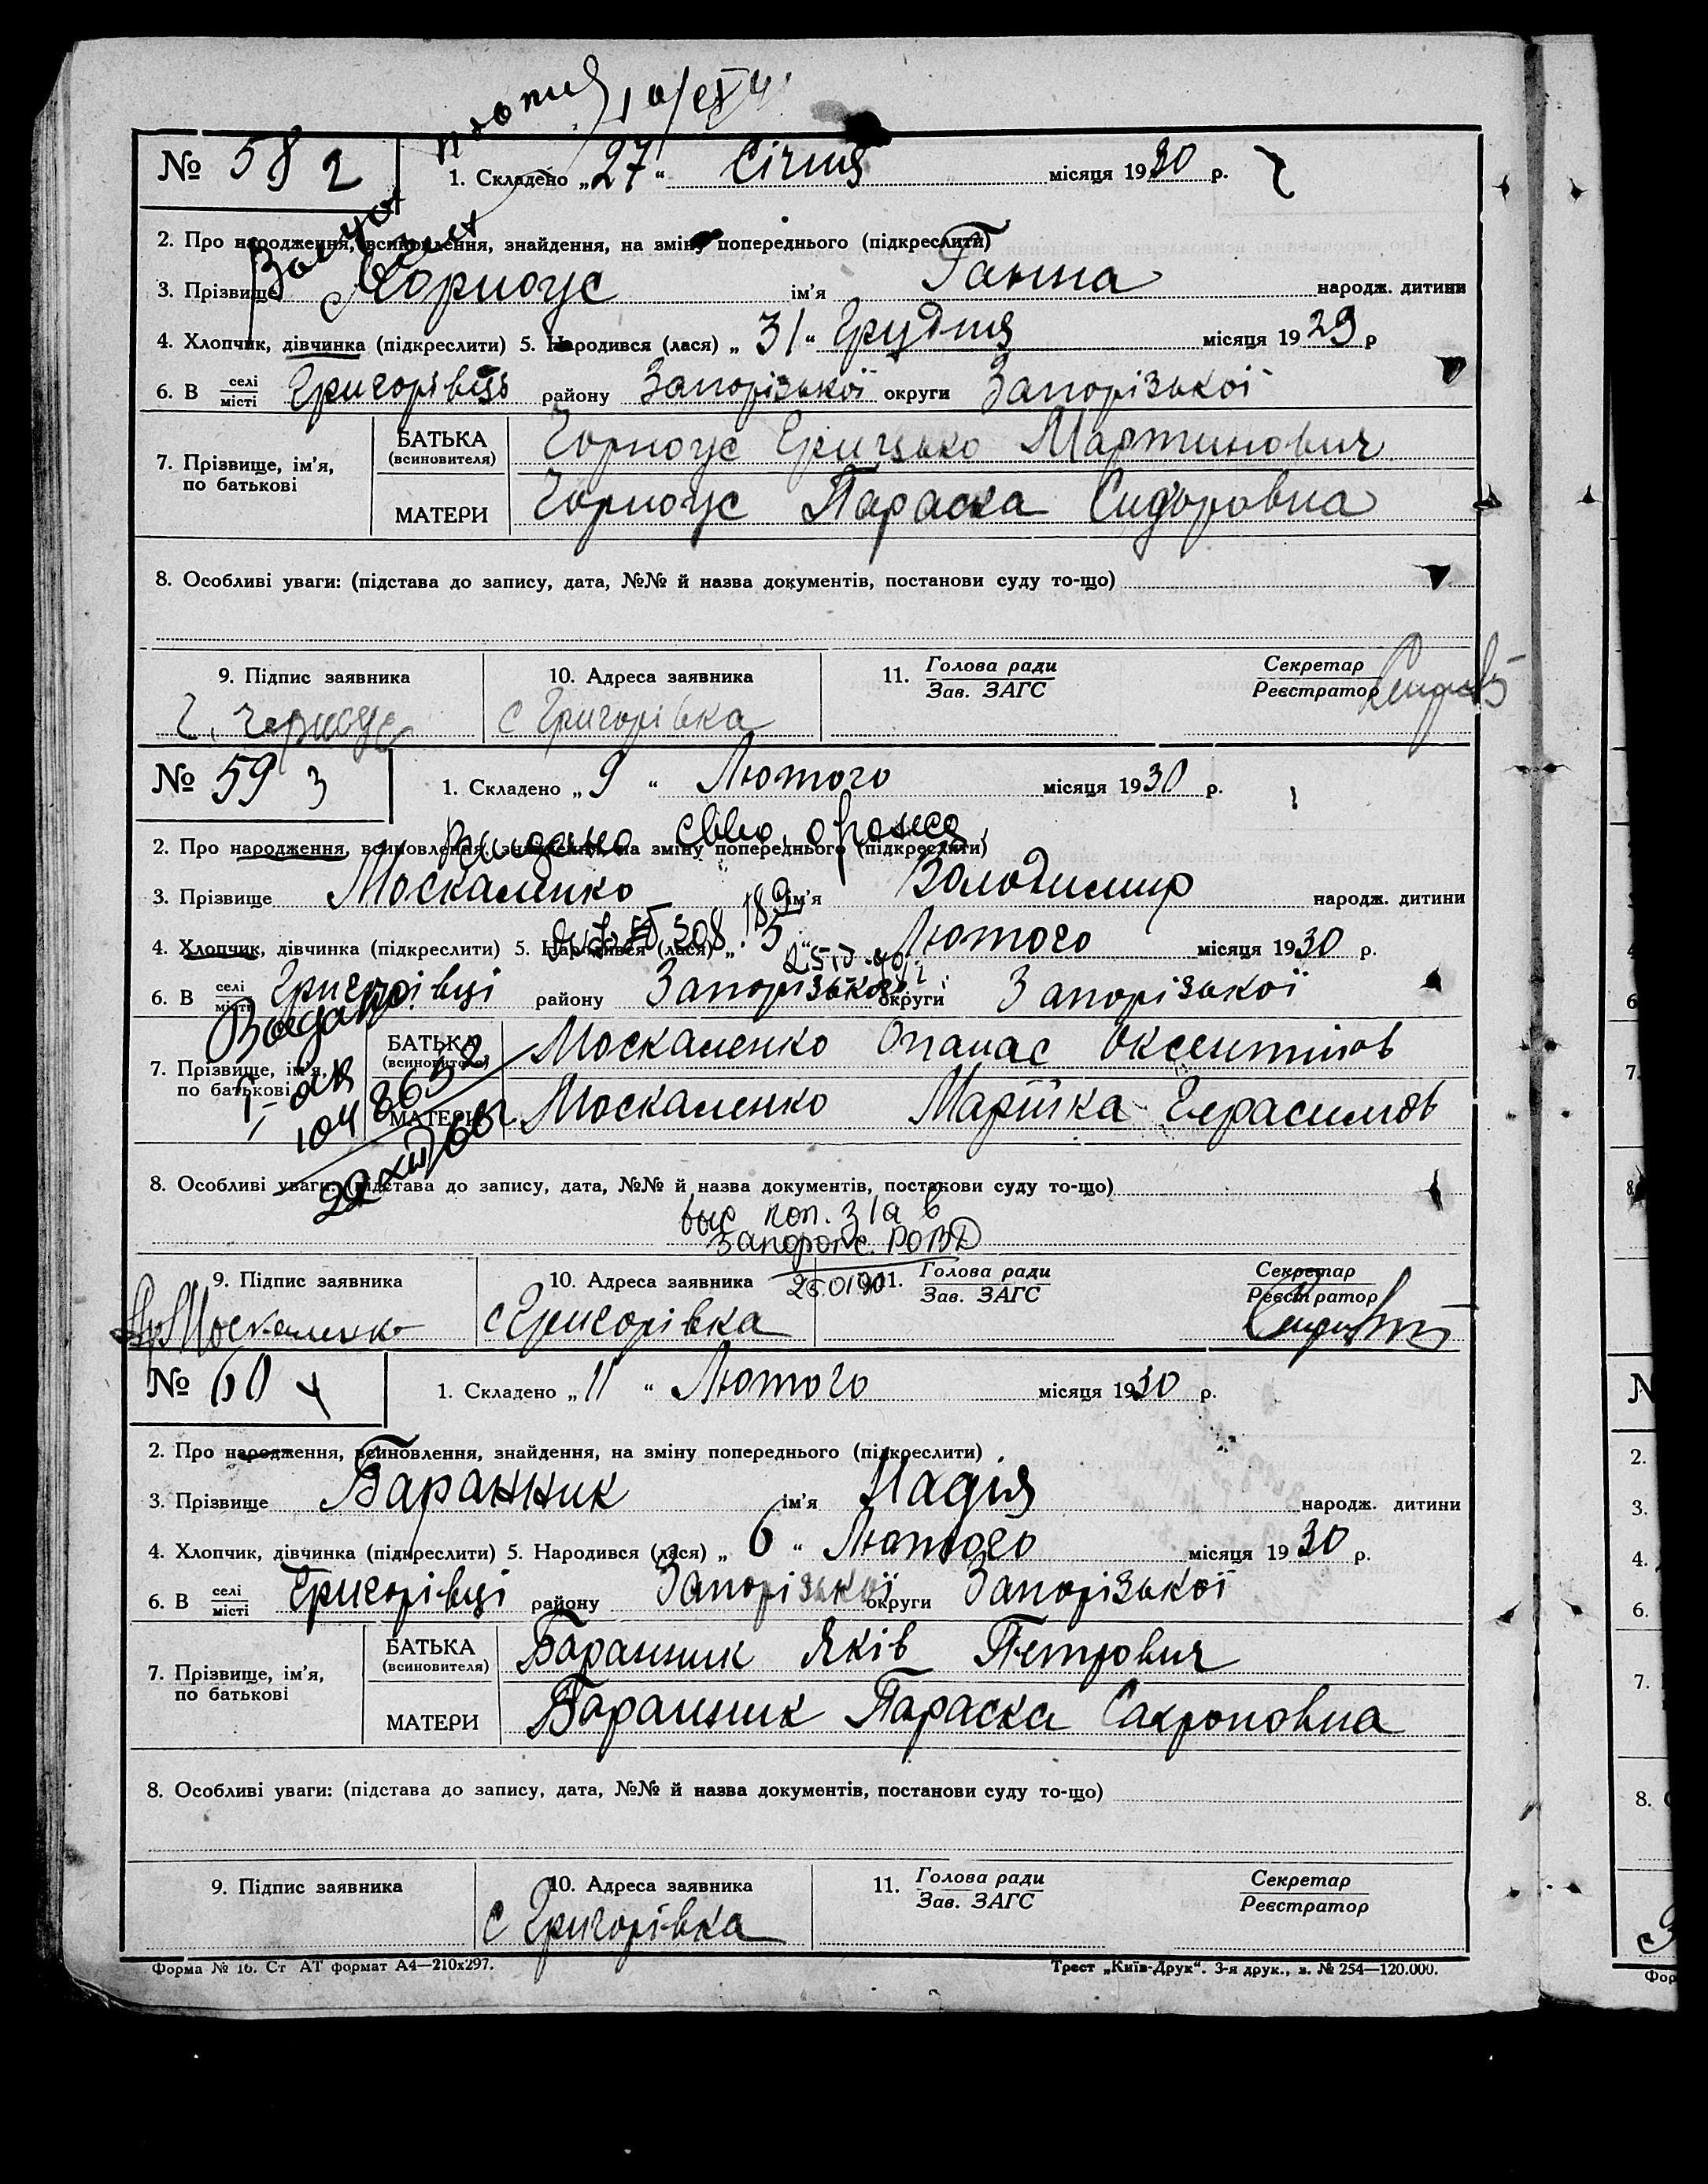 № 58 2
1. Складено „27“ Січня місяця 1930 р.
2. Про народження, всиновлення, знайдення, на зміну попереднього (підкреслити)
3. Прізвище Чорноус ім'я Ганна народж. дитини
4. Хлопчик, дівчинка (підкреслити) 5. Народився (лася) „31“ Грудня місяця 1929 р
6. В селі місті Григорівці району Запорізької округи Запорізької
7. Прізвище, ім'я, по батькові
БАТЬКА (всиновителя) Чорноус Грицько Мартинович
МАТЕРИ Чорноус Параска Сидоровна
8. Особливі уваги: (підстава до запису, дата, №№ й назва документів, постанови суду то-що)
9. Підпис заявника 10. Адреса заявника 11. Голова ради Зав. ЗАГС Секретар Реєстратор
с Григорівка
№ 59 3
1. Складено „9“ Лютого місяця 1930 р.
2. Про народження, всиновлення, знайдення, на зміну попереднього (підкреслити)
3. Прізвище Москаленко ім'я Володимир народж. дитини
4. Хлопчик, дівчинка (підкреслити) 5. Народився (лася) „5“ Лютого місяця 1930 р.
6. В селі місті Григорівці району Запорізької округи Запорізької
7. Прізвище, ім'я, по батькові
БАТЬКА (всиновителя) Москаленко Опанас Оксентійов
МАТЕРИ Москаленко Марійка Герасимов
8. Особливі уваги: (підстава до запису, дата, №№ й назва документів, постанови суду то-що)
Запорож. РОВД
9. Підпис заявника 10. Адреса заявника 11. Голова ради Зав. ЗАГС Секретар Реєстратор
Москаленко с Григорівка
№ 60 4
1. Складено „11“ Лютого місяця 1930 р.
2. Про народження, всиновлення, знайдення, на зміну попереднього (підкреслити)
3. Прізвище Баранник ім'я Надія народж. дитини
4. Хлопчик, дівчинка (підкреслити) 5. Народився (лася) „6“ Лютого місяця 1930 р.
6. В селі місті Григорівці району Запорізької округи Запорізької
7. Прізвище, ім'я, по батькові
БАТЬКА (всиновителя) Баранник Яків Петрович
МАТЕРИ Баранник Параска Сахроновна
8. Особливі уваги: (підстава до запису, дата, №№ й назва документів, постанови суду то-що)
9. Підпис заявника 10. Адреса заявника 11. Голова ради Зав. ЗАГС Секретар Реєстратор
с Григорівка
Форма № 16. Ст АТ формат А4—210х297. Трест „Київ-Друк“. 3-я друк., з. № 254—120.000.